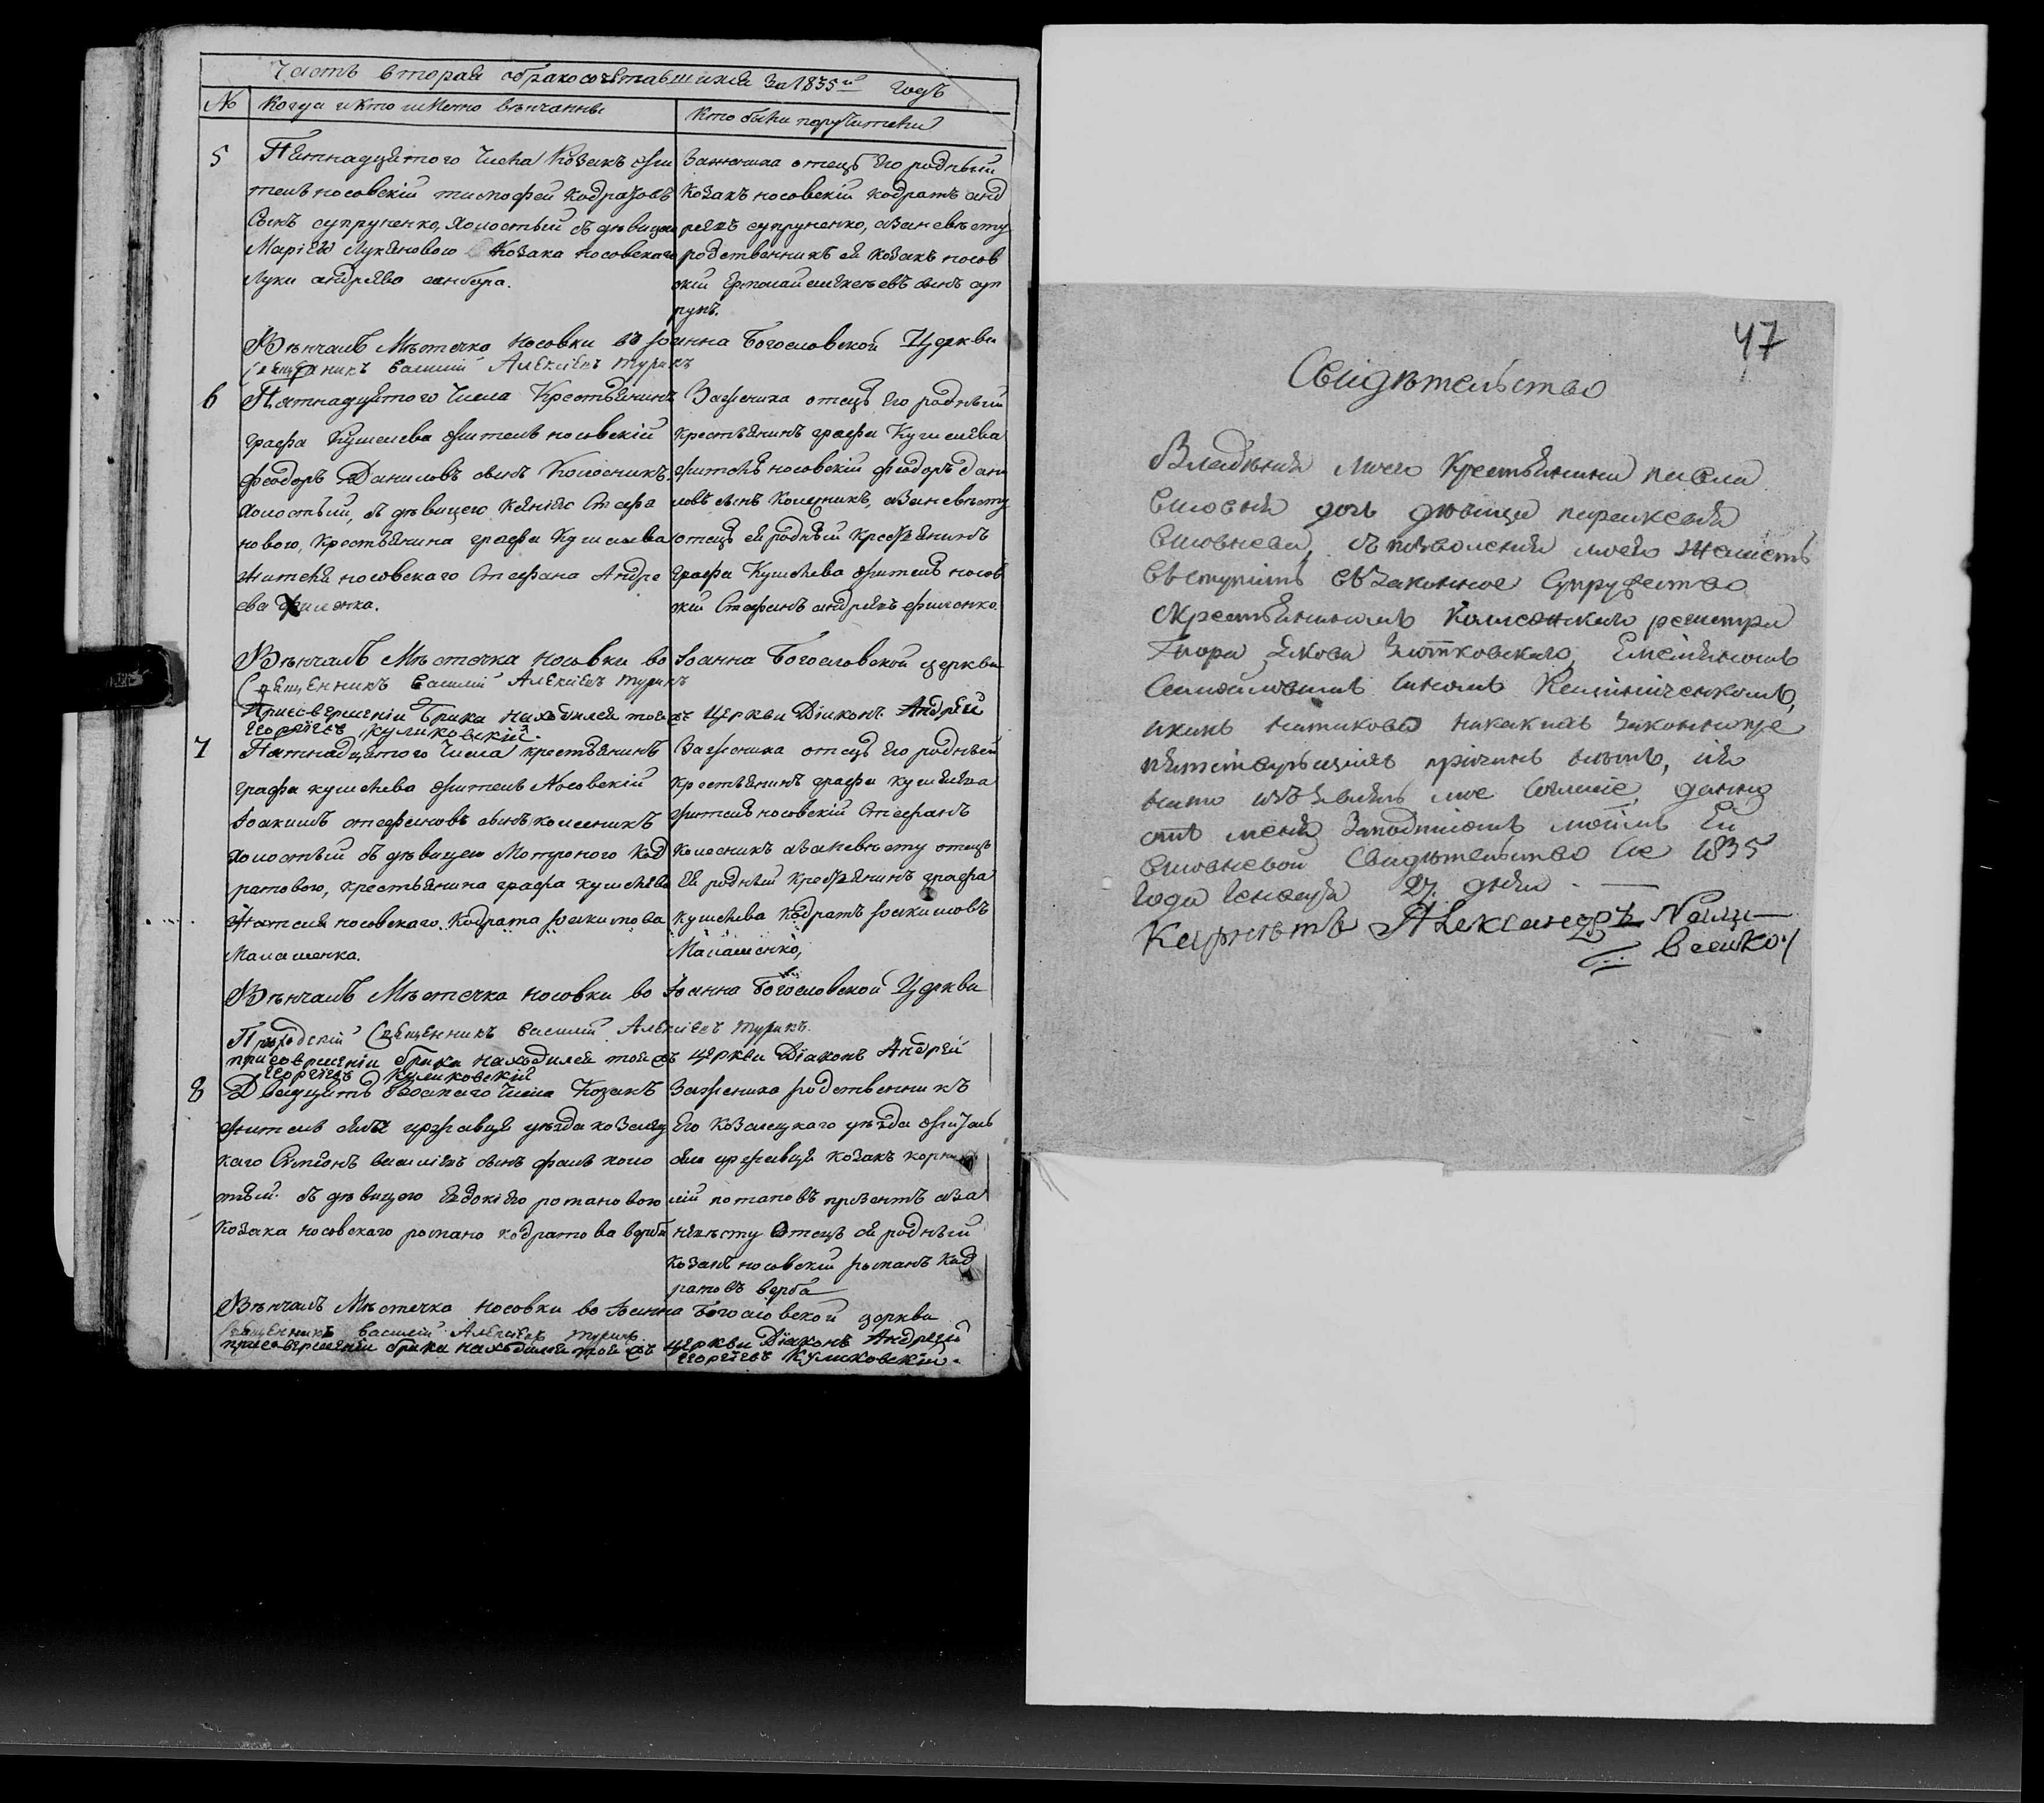 Часть вторая обракосочетавшихся за 1835й годъ
№
Когда и кто именно вѣнчанны
Кто были поручители
5
Пятнадцятого числа Козакъ жи
тель носовскій тимофей Кодратовъ
Сынъ супруненко, Холостый съ дѣвицею
Маріею Лукяновою Козака носовскаго
Луки андреева самбора.
Зажениха отецъ Его родный
Козакъ носовскій кодратъ анд
реевъ супруненко, азаневѣсту
родственникъ ея козакъ носов
скій Ермолай сынъ суп
рунъ.
Вѣнчалъ Мѣстечка Носовки во Іоанна Богословской Церкви
Священникъ Василий Алексіевъ Турикъ
6
Пятнадцятого Числа Крестьянинъ
графа Кушелева житель носовскій
Феодоръ Даниловъ сынъ Колесникъ
Холостый, съ дѣвицею Стефа
новою, Крестьянина графа Кушелева
жителя носовскаго Стефана Андре
ева
Зажениха отецъ Его родный
крестьянинъ графа Кушелева
житель носовскій феодоръ дани
ловъ сынъ Колесникъ, азаневѣсту
отецъ ея родный крестьянинъ
графа Кушелева житель носов
скій Стефанъ андреевъ филенко.
Вѣнчалъ Мѣстечка Носовки во Іоанна Богословской церкви
Священникъ Василий Алексіевъ Турикъ
присовершеніи брака находился тояжъ Церкви Діаконъ Андрей
Георгіевъ Куликовскій.
7
Пятнадцятого Числа крестьянинъ
графа кушелева житель Носовскій
Іоакимъ стефановъ сынъ колесникъ
Холостый съ дѣвицею Мотроною Код
ратовою, крестьянина графа кушелева
жителя носовскаго Кодрата Іоакимова
Малашенка.
Зажениха отецъ Его родный
крестьянинъ графа кушелева
житель носовскій Стефанъ
Колесникъ азаневѣсту отецъ
Ея родный Крестьянинъ графа
кушелева кодратъ Іоакимовъ
Малашенко,
Вѣнчалъ Мѣстечка Носовки во Іоанна Богословской Церкви
Приходскій Священникъ Василий Алексіевъ Турикъ.
присовершеніи брака находился тояжъ церкви Діаконъ Андрей
Георгіевъ Куликовскій
8
Двадцять числа Козакъ
житель села уѣзда козелец
каго Симеонъ сынъ холо
стый съ дѣвицею Евдокіею романовою
Козака носовскаго романа кодратова верби
Зажениха родственникъ
Его козелецкаго уѣзда житель
села козакъ корни
лій потаповъ аза
невѣсту отецъ ея родный
козакъ носовскій романъ код
ратовъ верба
Вѣнчалъ Мѣстечка Носовки во Іоанна Богословской церкви
Священникъ Василий Алексіевъ Турикъ
присовершеніи брака находился тояжъ церкви Діаконъ Андрей
Георгіевъ Куликовскій.
47
Свидѣтельство
Владѣнія моего Крестьянина павла
дочь дѣвица параскевія
съ позволенія моего желаетъ
вступить въ законное Супружество
скрестьяниномъ Колежскаго регистра
тора Якова Емеліяномъ
Самойловымъ сыномъ
никакихъ законнопре
пятствующихъ причинъ нѣтъ, и я
на то изъявляя мое согласіе, данно
отъ меня заподписомъ моимъ Ей
Свидѣтельство Сіе 1835
года Генваря 27. дня.
Корнетъ Александръ